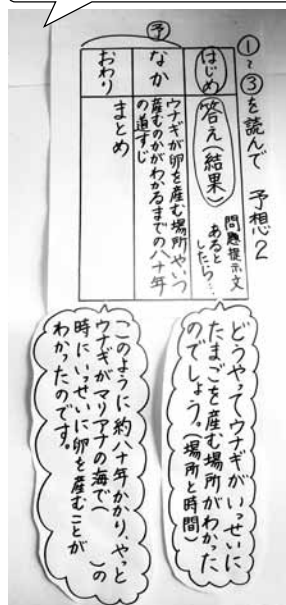 ①~③を読んで 予想2
予
はじめ
答え(結果)
問題提示文
あると
したら…
なか
ウナギが卵を産む場所やいつ
産むのかがわかるまでの八十年
の道すじ
おわり
まとめ
どうやってウナギがいっせいに
たまごを産む場所がわかった
のでしょう。(場所と時間)
このように約八十年かかり、やっと
ウナギがマリアナの海で( )の
時にいっせいに卵を産むことが
わかったのです。